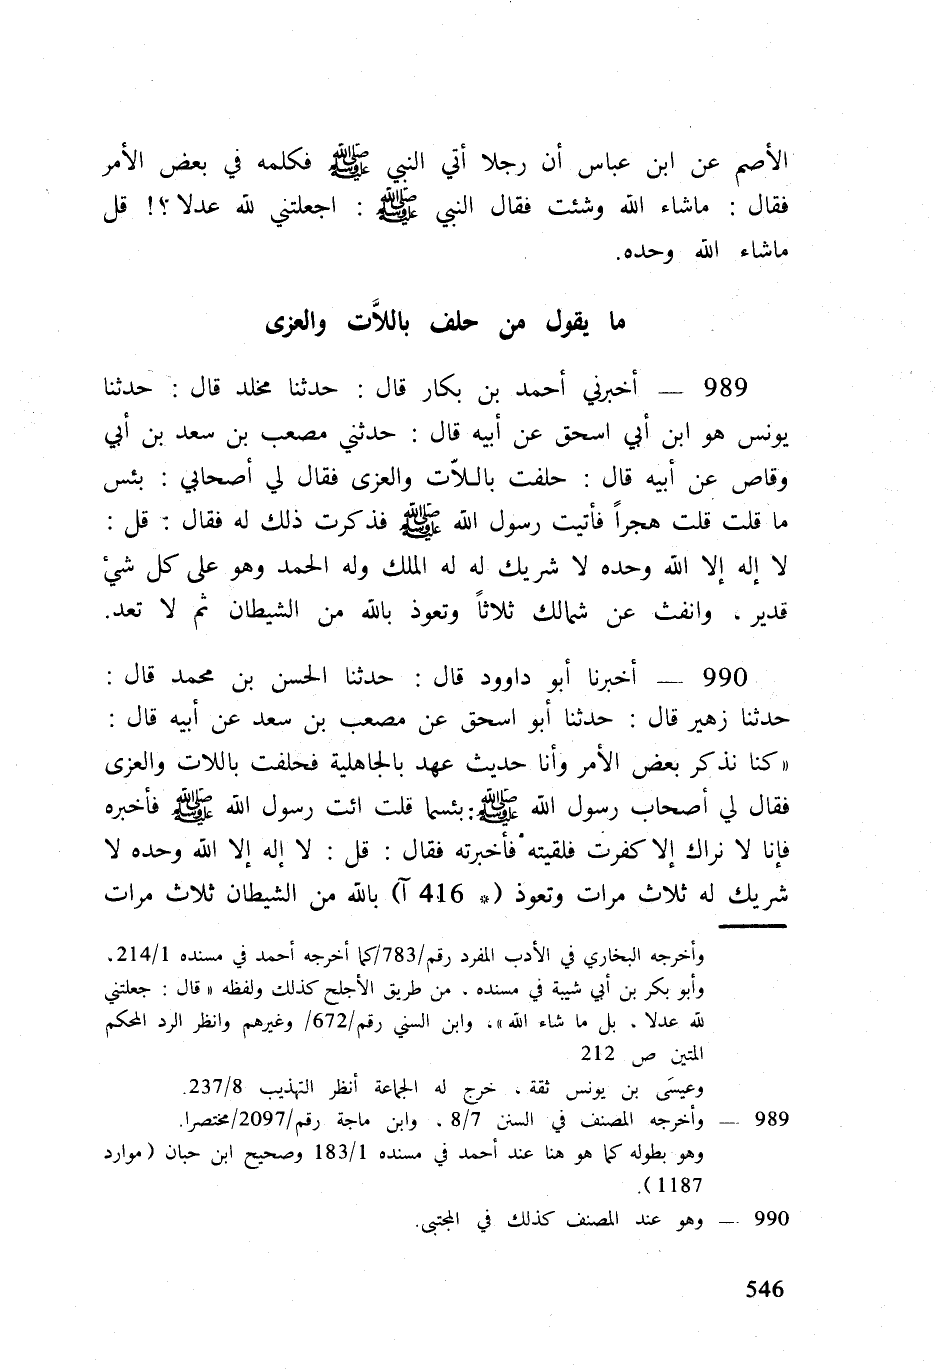 الأصم عن ابن عباس أن رجلا أتي النبي ﷺ فكلمه في بعض الأمر
فقال : ماشاء الله وشئت فقال النبي ﷺ : اجعلتني لله عدلا ؟! قل
ماشاء الله وحده.
ما يقول من حلف باللاَّت والعزى
989 — أخبرني أحمد بن بكار قال : حدثنا مخلد قال : حدثنا
يونس هو ابن أبي اسحق عن أبيه قال : حدثني مصعب بن سعد بن أبي
وقاص عن أبيه قال : حلفت باللاّت والعزى فقال لي أصحابي : بئس
ما قلت قلت هجراً فأتيت رسول الله ﷺ فذكرت ذلك له فقال : قل :
لا إله إلا الله وحده لا شريك له له الملك وله الحمد وهو على كل شيْ
قدير . وانفث عن شمالك ثلاثاً وتعوذ بالله من الشيطان ثم لا تعد.
990 — أخبرنا أبو داوود قال : حدثنا الحسن بن محمد قال :
حدثنا زهير قال : حدثنا أبو اسحق عن مصعب بن سعد عن أبيه قال :
« كنا نذكر بعض الأمر وأنا حديث عهد بالجاهلية فحلفت باللات والعزى
فقال لي أصحاب رسول الله ﷺ: بئسما قلت ائت رسول الله ﷺ فأخبره
فإنا لا نراك إلا كفرت فلقيته فأخبرته فقال : قل : لا إله إلا الله وحده لا
شريك له ثلاث مرات وتعوذ (* 416 آ) بالله من الشيطان ثلاث مرات
وأخرجه البخاري في الأدب المفرد رقم/783/كما أخرجه أحمد في مسنده 214/1.
وأبو بكر بن أبي شيبة في مسنده . من طريق الأجلح كذلك ولفظه « قال : جعلتني
لله عدلا . بل ما شاء الله ». وابن السني رقم/672/ وغيرهم وانظر الرد المحكم
المتين ص 212
وعيسَى بن يونس ثقة . خرج له الجماعة أنظر التهذيب 237/8.
989 — وأخرجه المصنف في السنن 8/7 . وابن ماجة رقم/2097/مختصرا.
وهو بطوله كما هو هنا عند أحمد في مسنده 183/1 وصحيح ابن حبان ( موارد
1187 ).
990 — وهو عند المصنف كذلك في المجتبى.
546